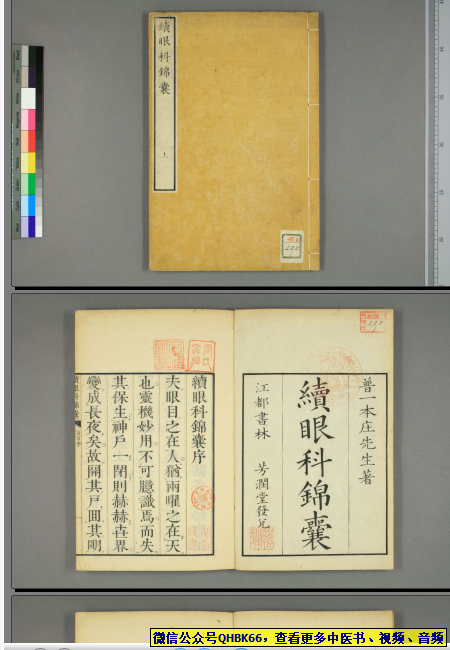 續眼科錦囊
上
普一本庄先生著
續眼科錦囊
江都書林 芳潤堂發兌
續眼科錦囊序
夫眼目之在人猶兩曜之在天
也靈機妙用不可臆識焉而失
其保生神戶一閉則赫赫卋界
變成長夜矣故開其戶囬其明
微信公众号QHBK66，查看更多中医书、视频、音频